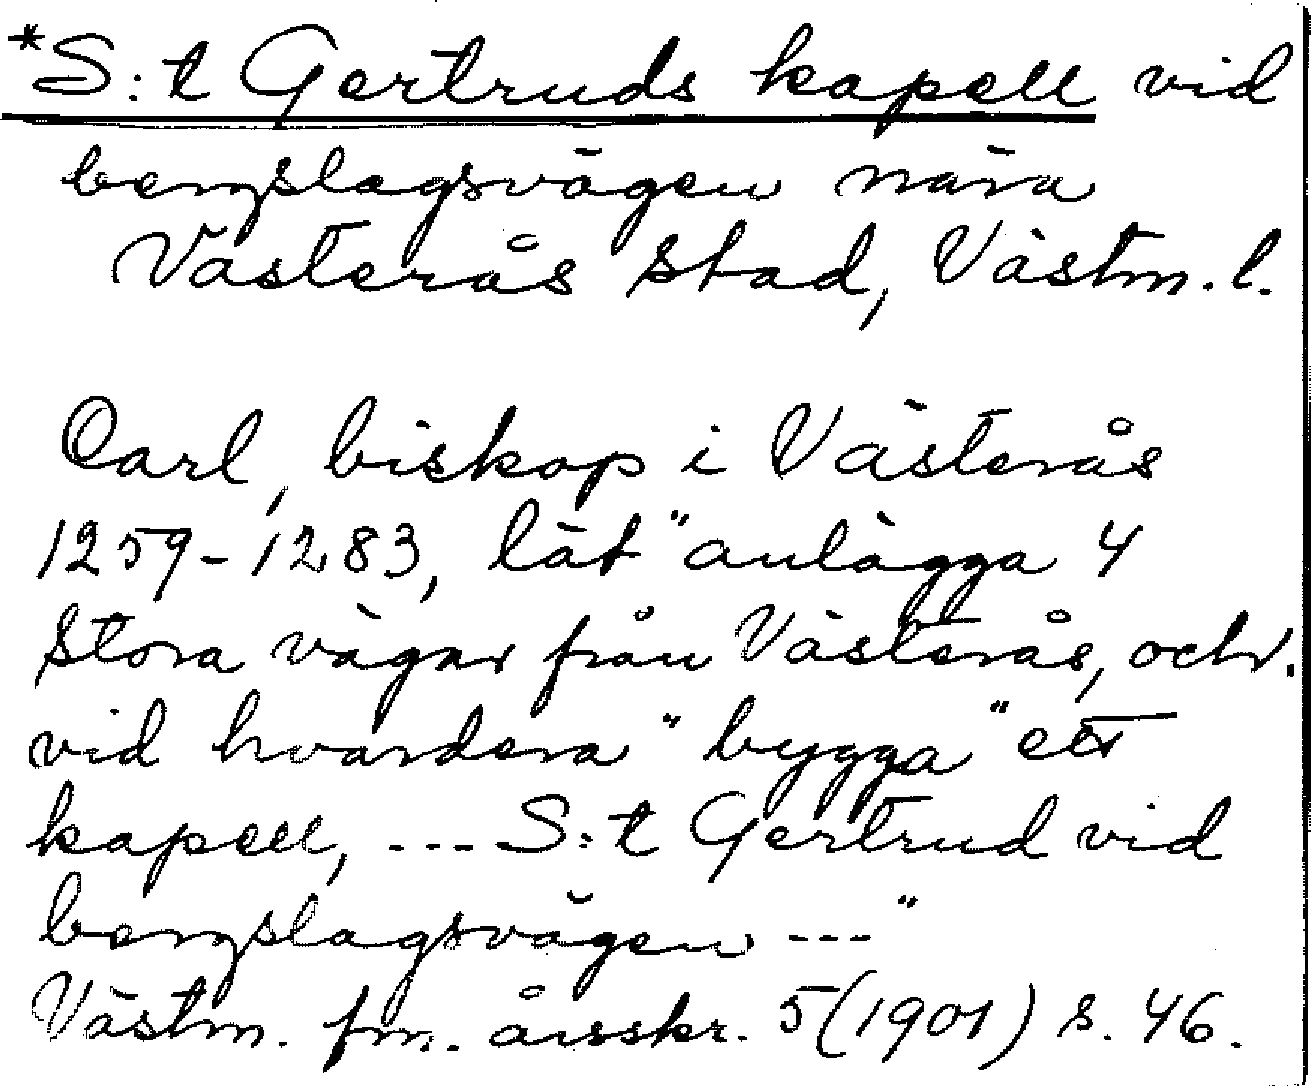 *S:t Gertruds kapell vid
bergslagsvägen nära
Västerås stad, Västm. l.
Carl, biskop i Västerås
1259-1283, lät "anlägga 4
stora vägar från Västerås, och.
vid hvardera" bygga "ett
kapell, --- S:t Gertrud vid
bergslagsvägen ---"
Västm. fm. årsskr. 5 (1901) s. 46.